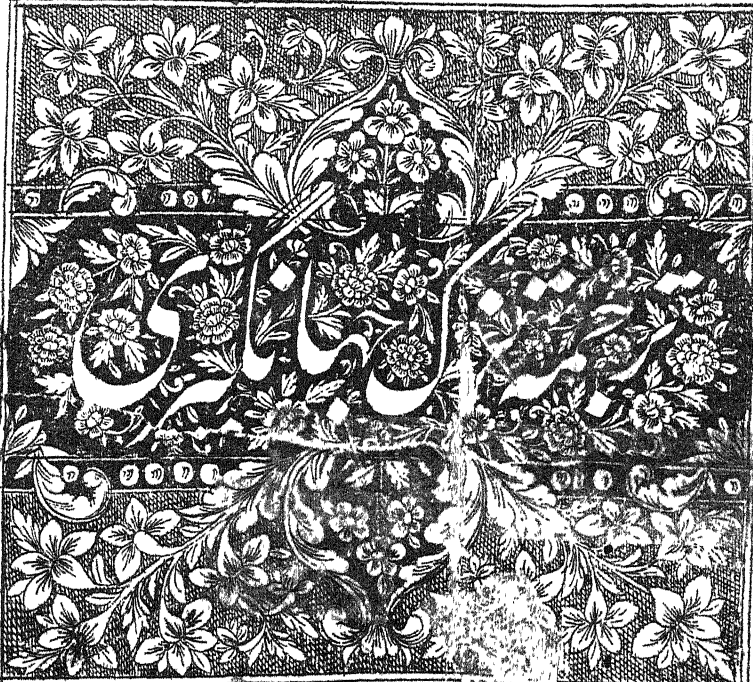 ترجمہ تزک جہانگیری